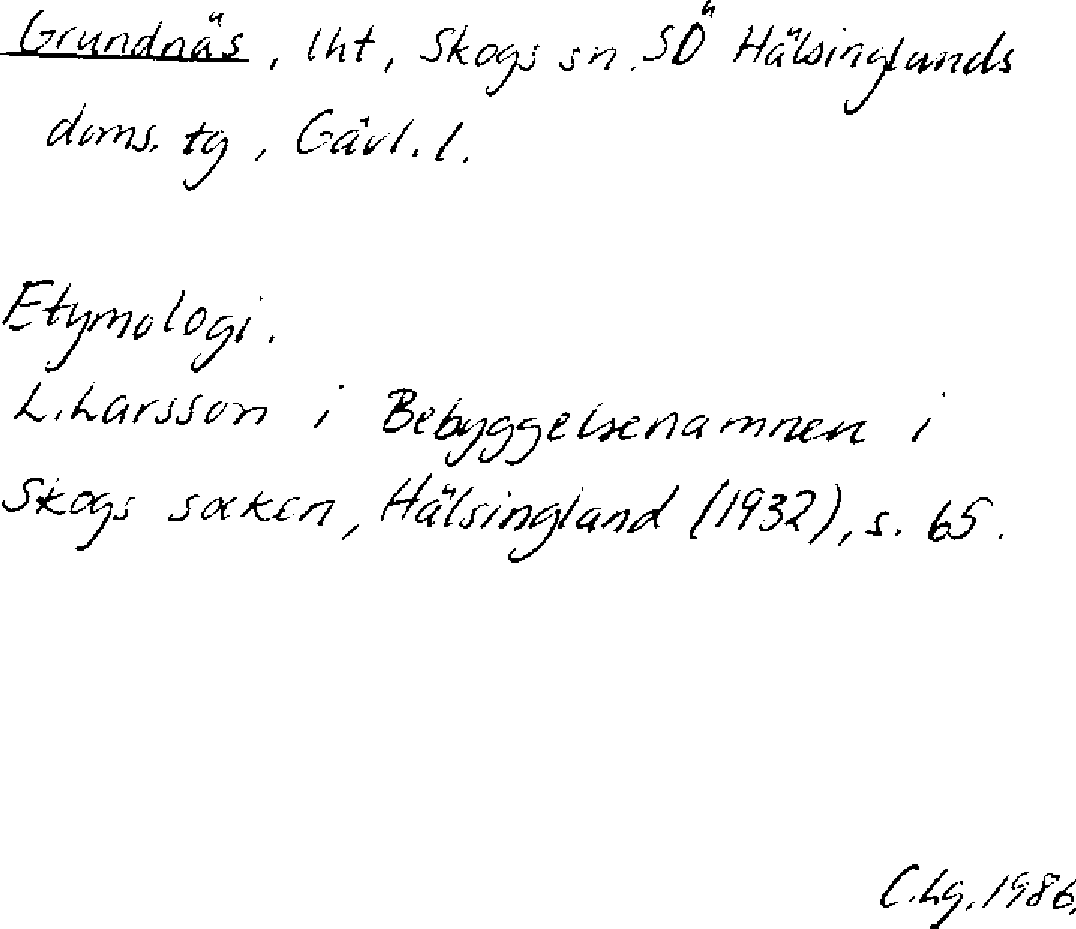 Grundnäs, lht, Skogs sn. SÖ Hälsinglands
doms. tg, Gävl. l.
Etymologi.
L. Larsson i Bebyggelsenamnen i
Skogs socken, Hälsingland (1932), s. 65.
C.Lg. 1986.